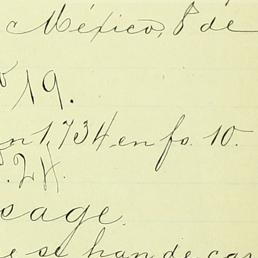 México, 8 de
19.
n 1,734 en fo. 10.
. 24.
sage.
e se han de cas